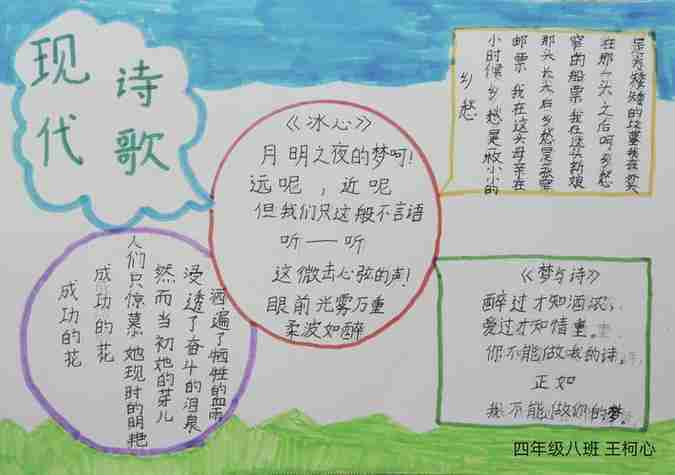 现代
诗歌
《冰心》
月明之夜的梦呵！
远呢，近呢
但我们只这般不言语
听——听
这微击心弦的声！
眼前光雾万重
柔波如醉
乡愁
小时候乡愁是一枚小小的
邮票 我在这头母亲在
那头长大后乡愁是张窄
窄的船票 我在这头新娘
在那一头 之后呵乡愁
是方矮矮的坟墓我在外头
成功的花
成功的花
人们只惊慕她现时的明艳
然而当初她的芽儿
浸透了奋斗的泪泉
洒遍了牺牲的血雨
《梦与诗》
醉过才知酒浓，
爱过才知情重。
你不能做我的诗，
正如
我不能做你的梦。
四年级八班 王柯心